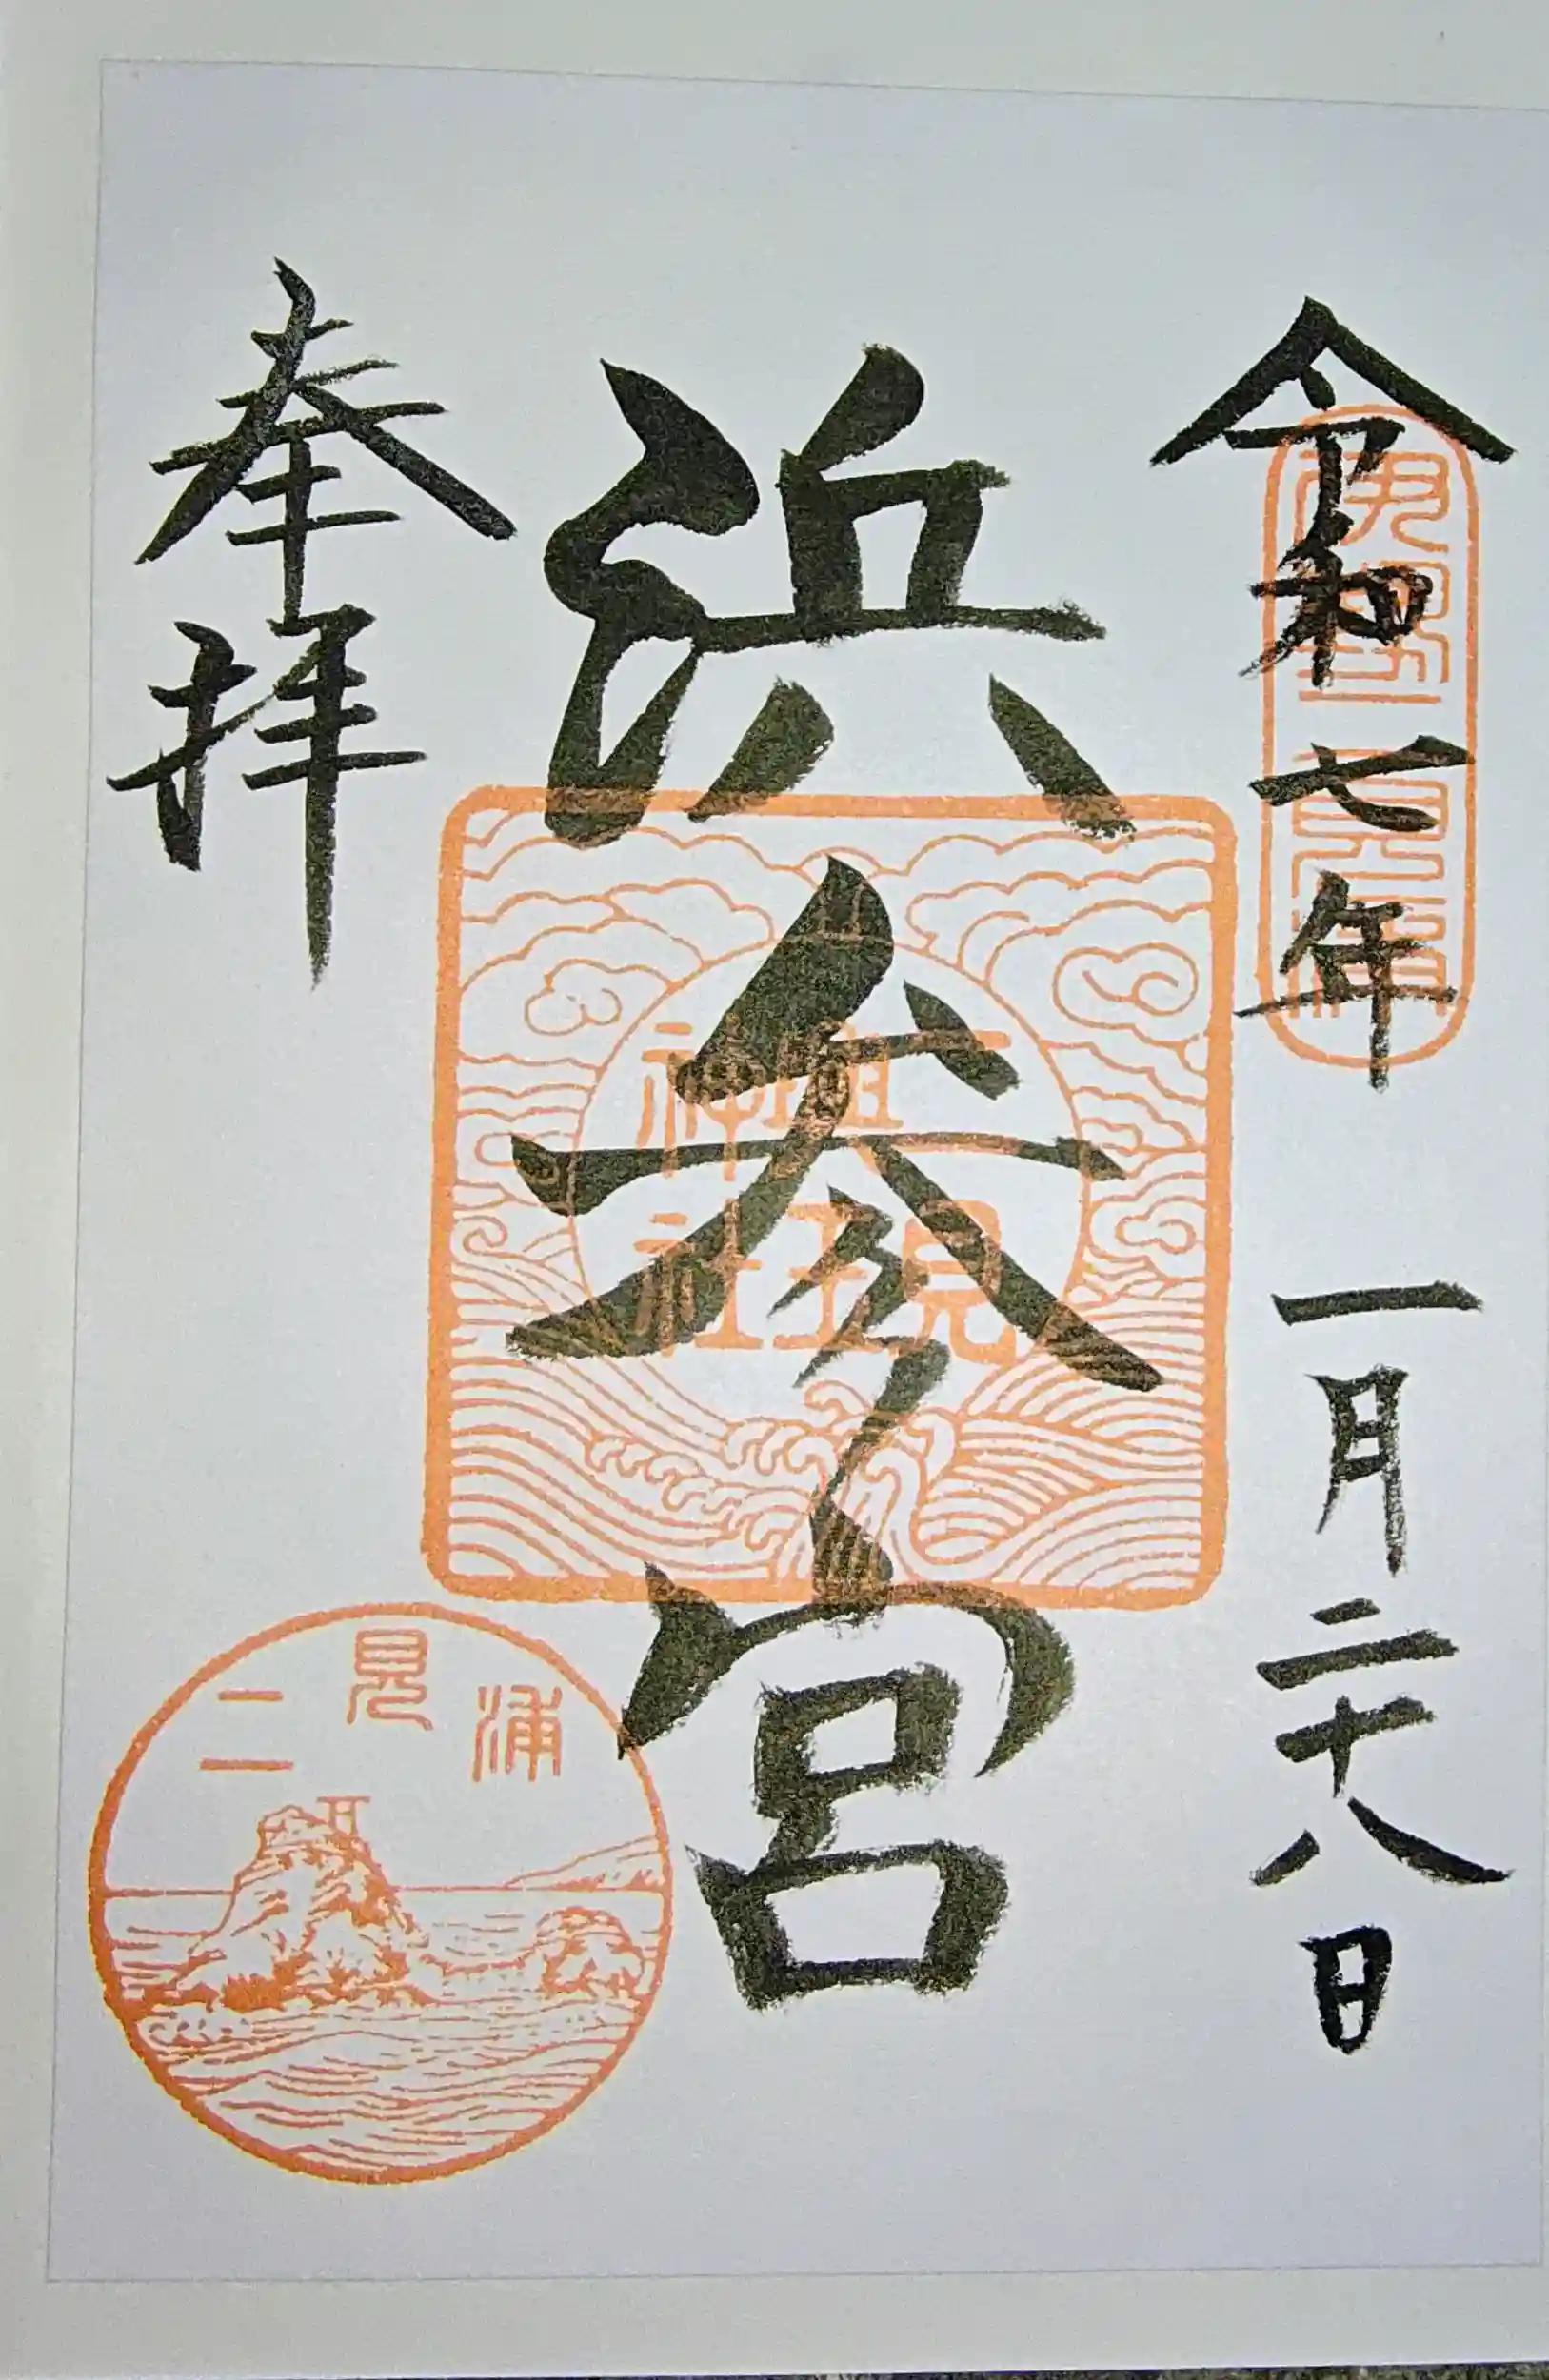 令和七年 一月二十八日
浜参宮
奉拝
二見興玉神社
二見浦